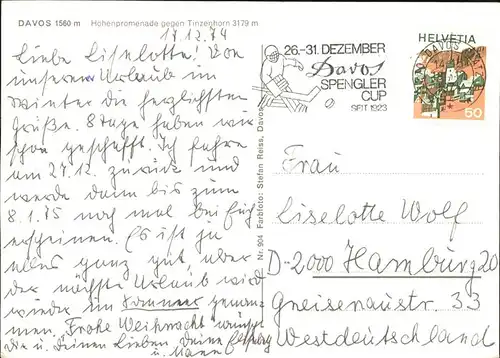 DAVOS 1560 m Höhenpromenade gegen Tinzenhorn 3179 m
17.12.74
Liebe Liselotte! Von
unserem Urlaub im
Winter die herzlichsten
Grüße. 8 Tage haben wir
schon geschafft. Ich fahre
am 27.12. zurück und
werde dann bis zum
8.1.75 noch mal bei Euch
erscheinen. Es ist ja
alles ganz gut aber
der nächste Urlaub wird
wieder im Sommer genom-
men. Frohe Weihnacht wünscht
Dir u. Deinen Lieben Deine
u. Mann
Nr. 904 Farbfoto: Stefan Reiss, Davos
26.-31. DEZEMBER
Davos
SPENGLER
CUP
SEIT 1923
HELVETIA
DAVOS
50
Frau
Liselotte Wolf
D-2000 Hamburg 20
Gneisenaustr. 33
Westdeutschland